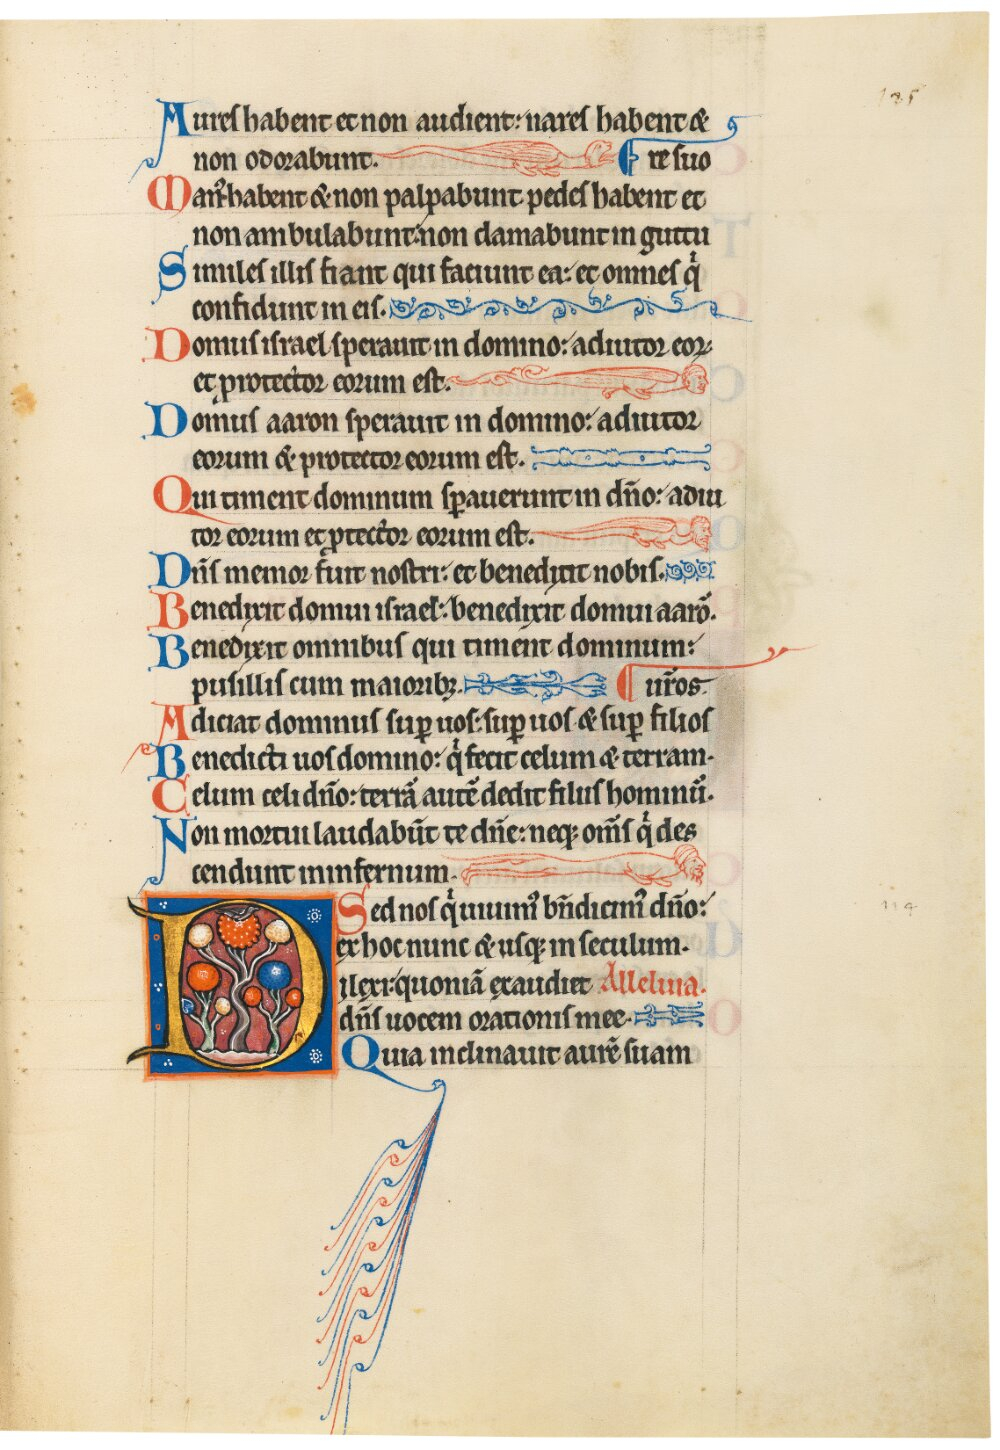 125
Aures habent et non audient: nares habent &
non odorabunt. re suo
Man᷒ habent & non palpabunt pedes habent et
non ambulabunt: non clamabunt in guttu
Similes illis fiant qui faciunt ea: et omnes q̇
confidunt in eis.
Domus israel sperauit in domino: adiutor eoꝝ
et protector eorum est.
Domus aaron sperauit in domino: adiutor
eorum & protector eorum est.
Qui timent dominum sꝑauerunt in dn̄o: adiu
tor eorum et ꝓtector eorum est.
Dn̄s memor fuit nostri: et benedixit nobis.
Benedixit domui israel: benedixit domui aarō.
Benedixit omnibus qui timent dominum:
pusillis cum maioribꝫ. ur̄os.
Adiciat dominus suꝑ uos: suꝑ uos & suꝑ filios
Benedicti uos domino: q̇ fecit celum & terram.
Celum celi dn̄o: terrā autē dedit filiis hominū.
Non mortui laudabūt te dn̄e: neqꝫ om̄s q̇ des
cendunt in infernum.
Sed nos q̇ uiuim᷒ bn̄dicim᷒ dn̄o:
ex hoc nunc & usqꝫ in seculum.
114
Dilexi: quoniā exaudiet Alleluia.
dn̄s uocem orationis mee.
Quia inclinauit aurē suam